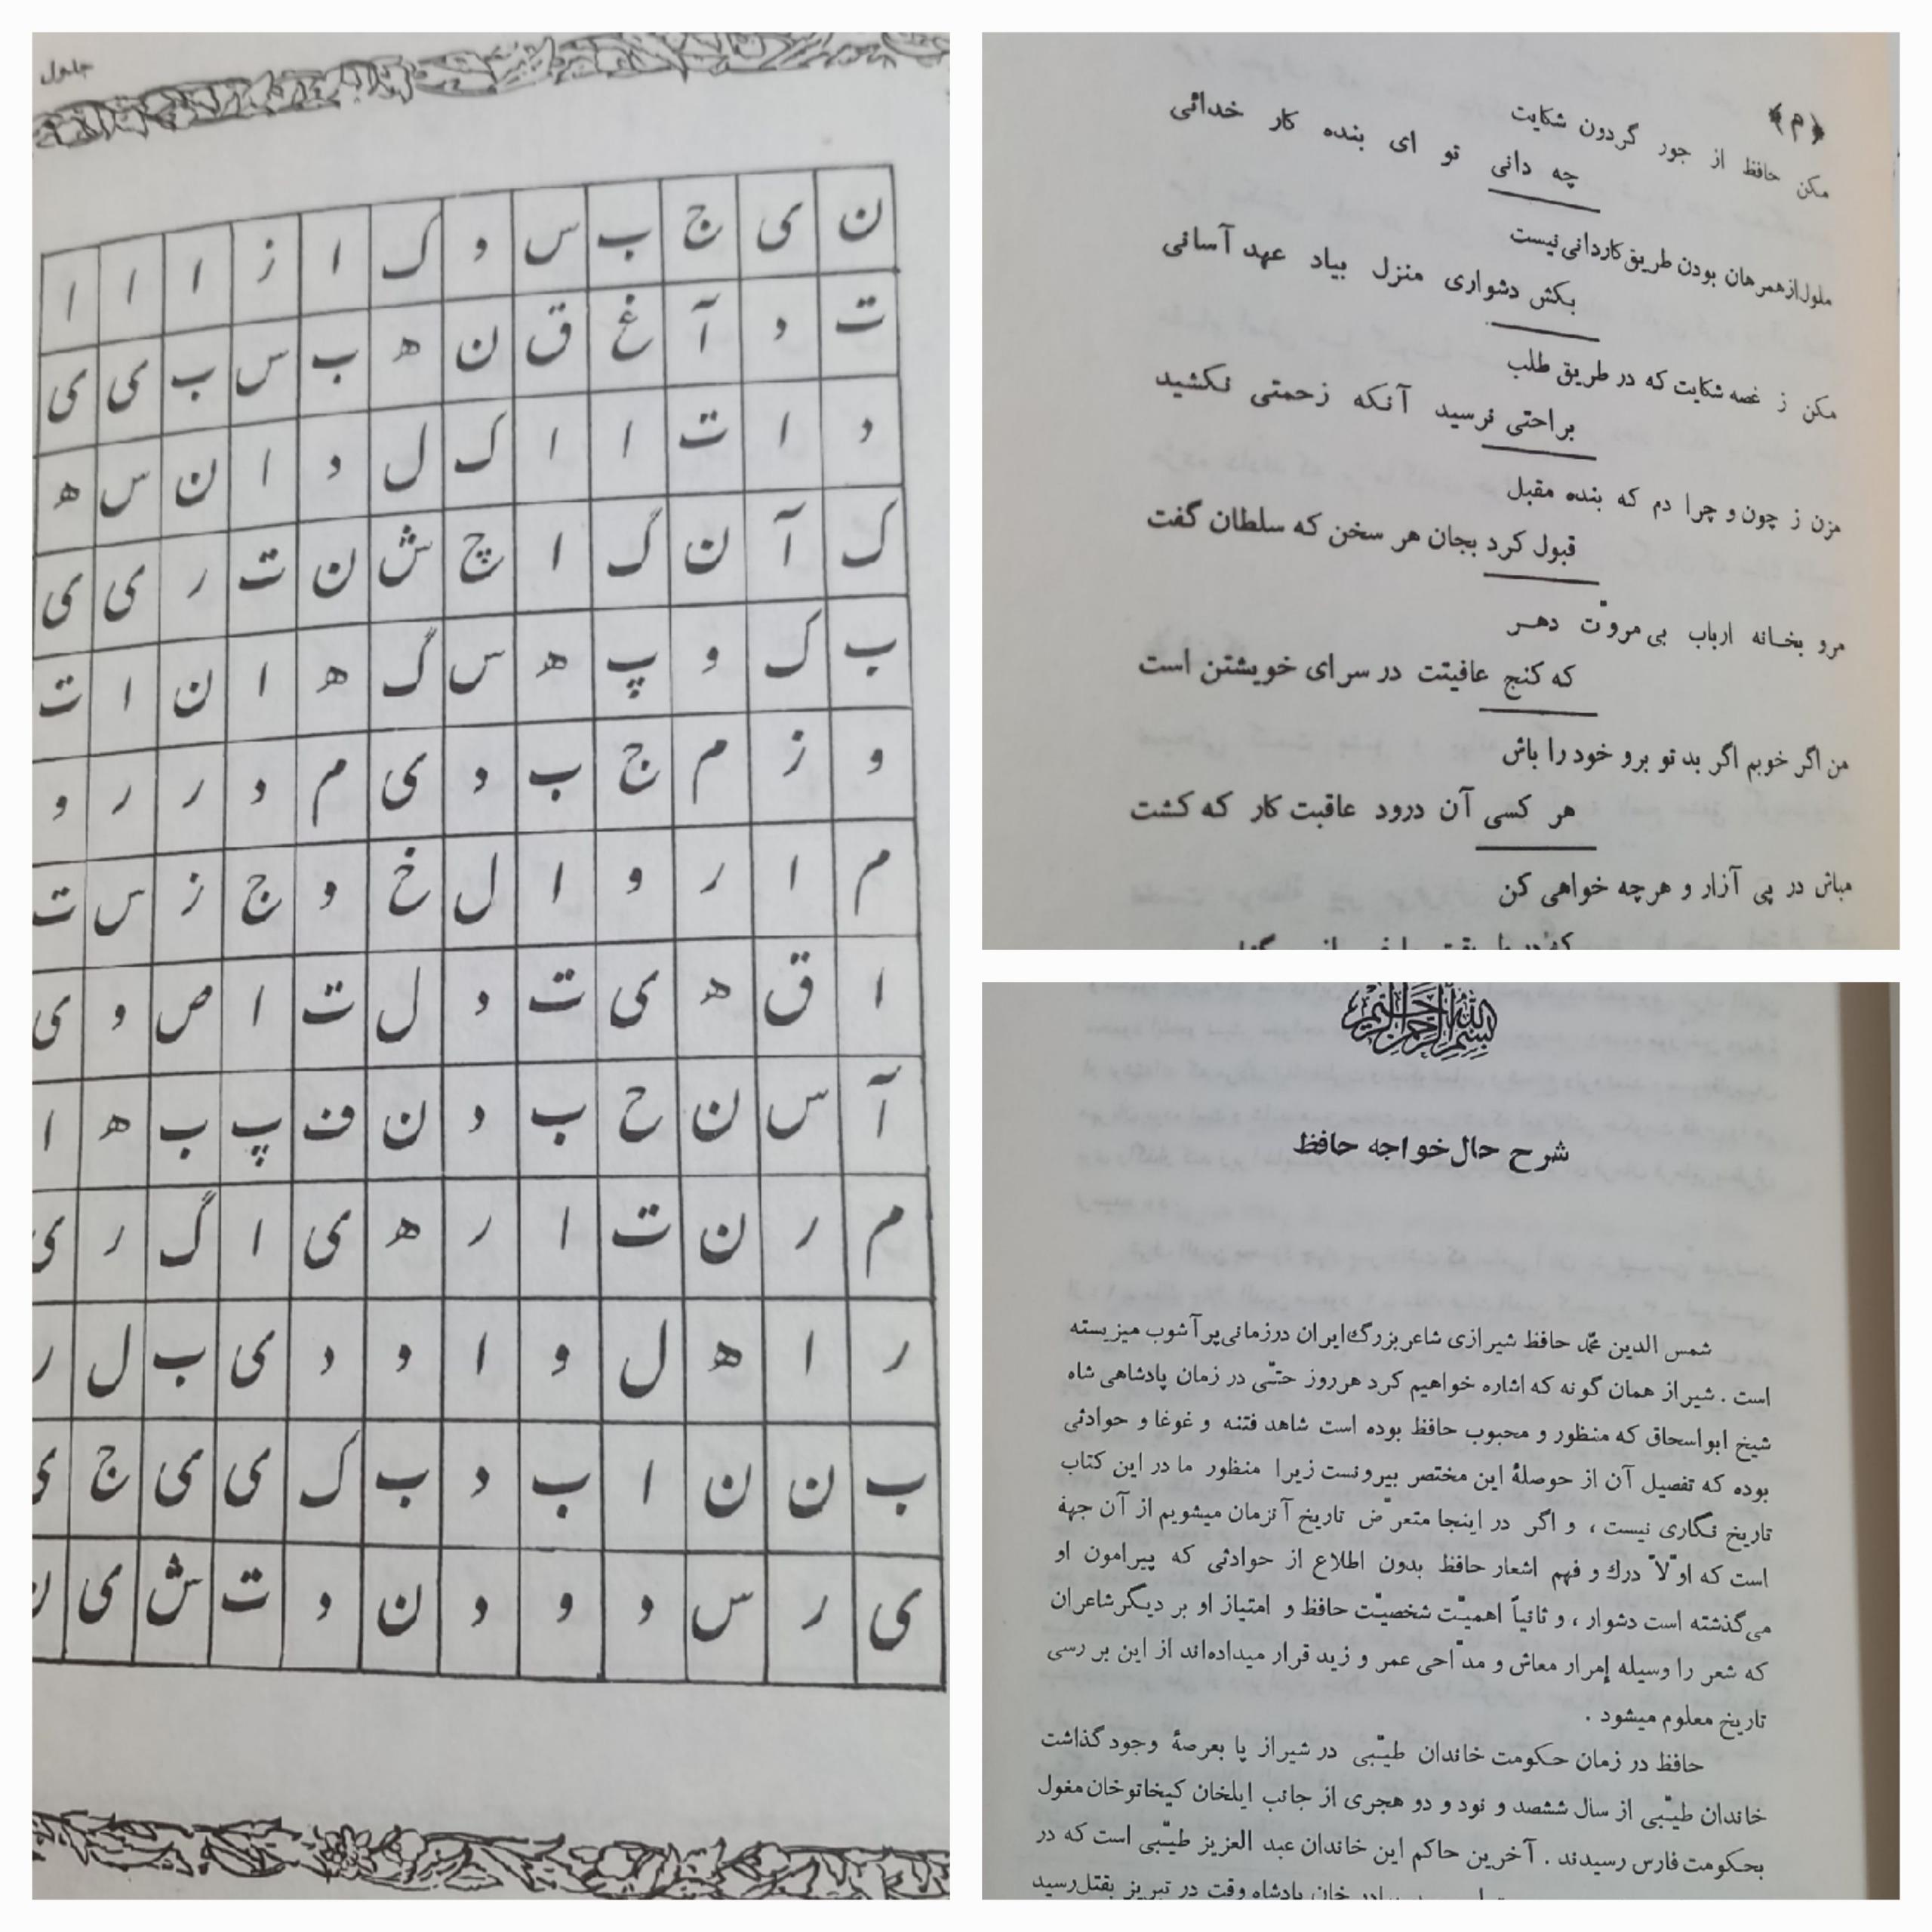 جدول
ن ی ج ب س و ک ا ز ا ا ا
ت د آ غ ق ن ه ب س ب ی ی
د ا ت ا ا ک ل د ا ن س ه
ک آ ن گ ا چ ش ن ت ر ی ی
ب ک و پ ه س گ ه ا ن ا ت
و ز م ج ب د ی م د ر ر و
م ا ر و ا ل خ د ج ز س ت
ا ق ه ی ت د ل ت ا ص و ی
آ س ن ح ب د ن ف پ ب ه ا
م ر ن ت ا ر ه ی ا گ ر ی
ر ا ه ل و ا و د ی ب ل ر
ب ن ن ا ب د ب ک ی ی ج ی
ی ر س د و د ن د ت ش ی
﴿م﴾
مکن حافظ از جور گردون شکایت
چه دانی تو ای بنده کار خدائی
ملول از همرهان بودن طریق کاردانی نیست
بکش دشواری منزل بیاد عهد آسانی
مکن ز غصه شکایت که در طریق طلب
براحتی نرسید آنکه زحمتی نکشید
مزن ز چون و چرا دم که بنده مقبل
قبول کرد بجان هر سخن که سلطان گفت
مرو بخانه ارباب بی مروّت دهر
که کنج عافیتت در سرای خویشتن است
من اگر خوبم اگر بد تو برو خود را باش
هر کسی آن درود عاقبت کار که کشت
مباش در پی آزار و هرچه خواهی کن
بسم الله الرحمن الرحیم
شرح حال خواجه حافظ
شمس الدین محمّد حافظ شیرازی شاعر بزرگ ایران در زمانی پر آشوب میزیسته
است . شیراز همان گونه که اشاره خواهیم کرد هرروز حتّی در زمان پادشاهی شاه
شیخ ابواسحاق که منظور و محبوب حافظ بوده است شاهد فتنه و غوغا و حوادثی
بوده که تفصیل آن از حوصلهٔ این مختصر بیرونست زیرا منظور ما در این کتاب
تاریخ نگاری نیست ، و اگر در اینجا متعرّض تاریخ آنزمان میشویم از آن جهة
است که اوّلاً درك و فهم اشعار حافظ بدون اطلاع از حوادثی که پیرامون او
می‌گذشته است دشوار ، و ثانیاً اهمیّت شخصیّت حافظ و امتیاز او بر دیگر شاعران
که شعر را وسیله إمرار معاش و مدّاحی عمر و زید قرار میداده‌اند از این بررسی
تاریخ معلوم میشود .
حافظ در زمان حکومت خاندان طیّبی در شیراز پا بعرصهٔ وجود گذاشت
خاندان طیّبی از سال ششصد و نود و دو هجری از جانب ایلخان کیخاتوخان مغول
بحکومت فارس رسیدند . آخرین حاکم این خاندان عبد العزیز طیّبی است که در
خان پادشاه وقت در تبریز بقتل رسید